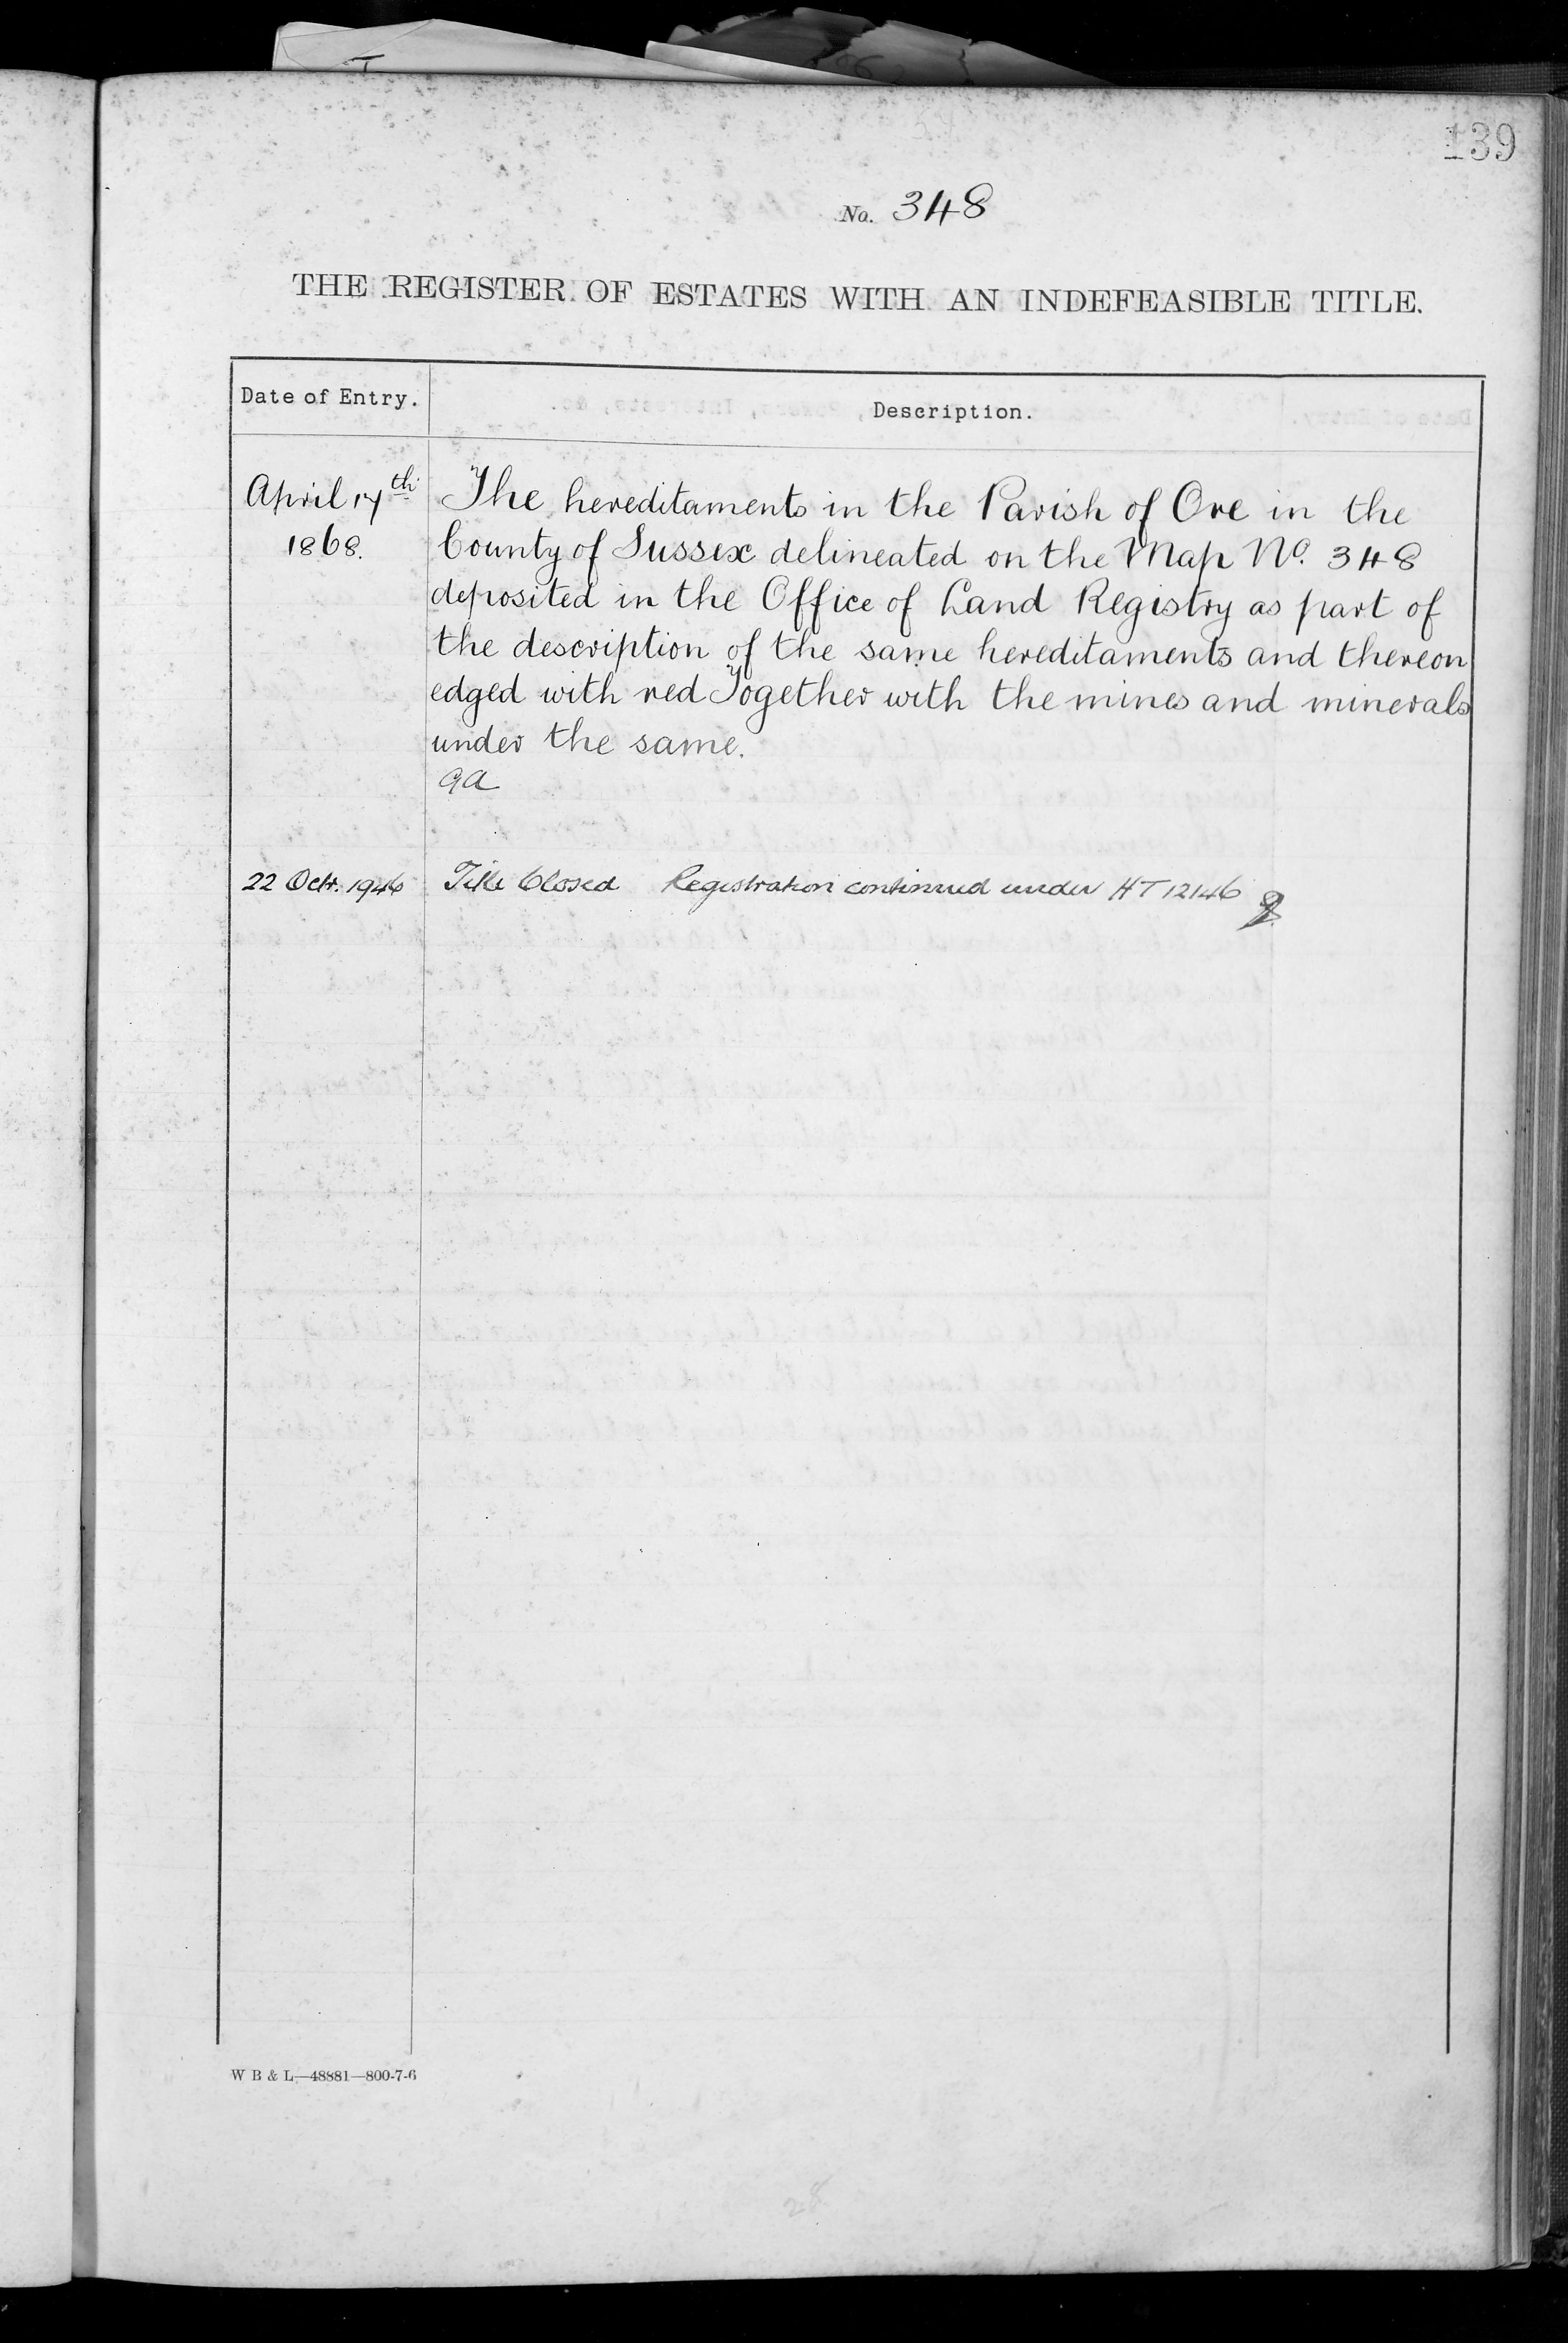 139
No. 348
THE REGISTER OF ESTATES WITH AN INDEFEASIBLE TITLE.
Date of Entry.
Description.
April 17th
1868.
The hereditaments in the Parish of Ore in the
County of Sussex delineated on the Map No. 348
deposited in the Office of Land Registry as part of
the description of the same hereditaments and thereon
edged with red Together with the mines and minerals
under the same.
22 Oct. 1946 Title Closed Registration continued under HT 12146
W B & L—48881—800-7-6
28